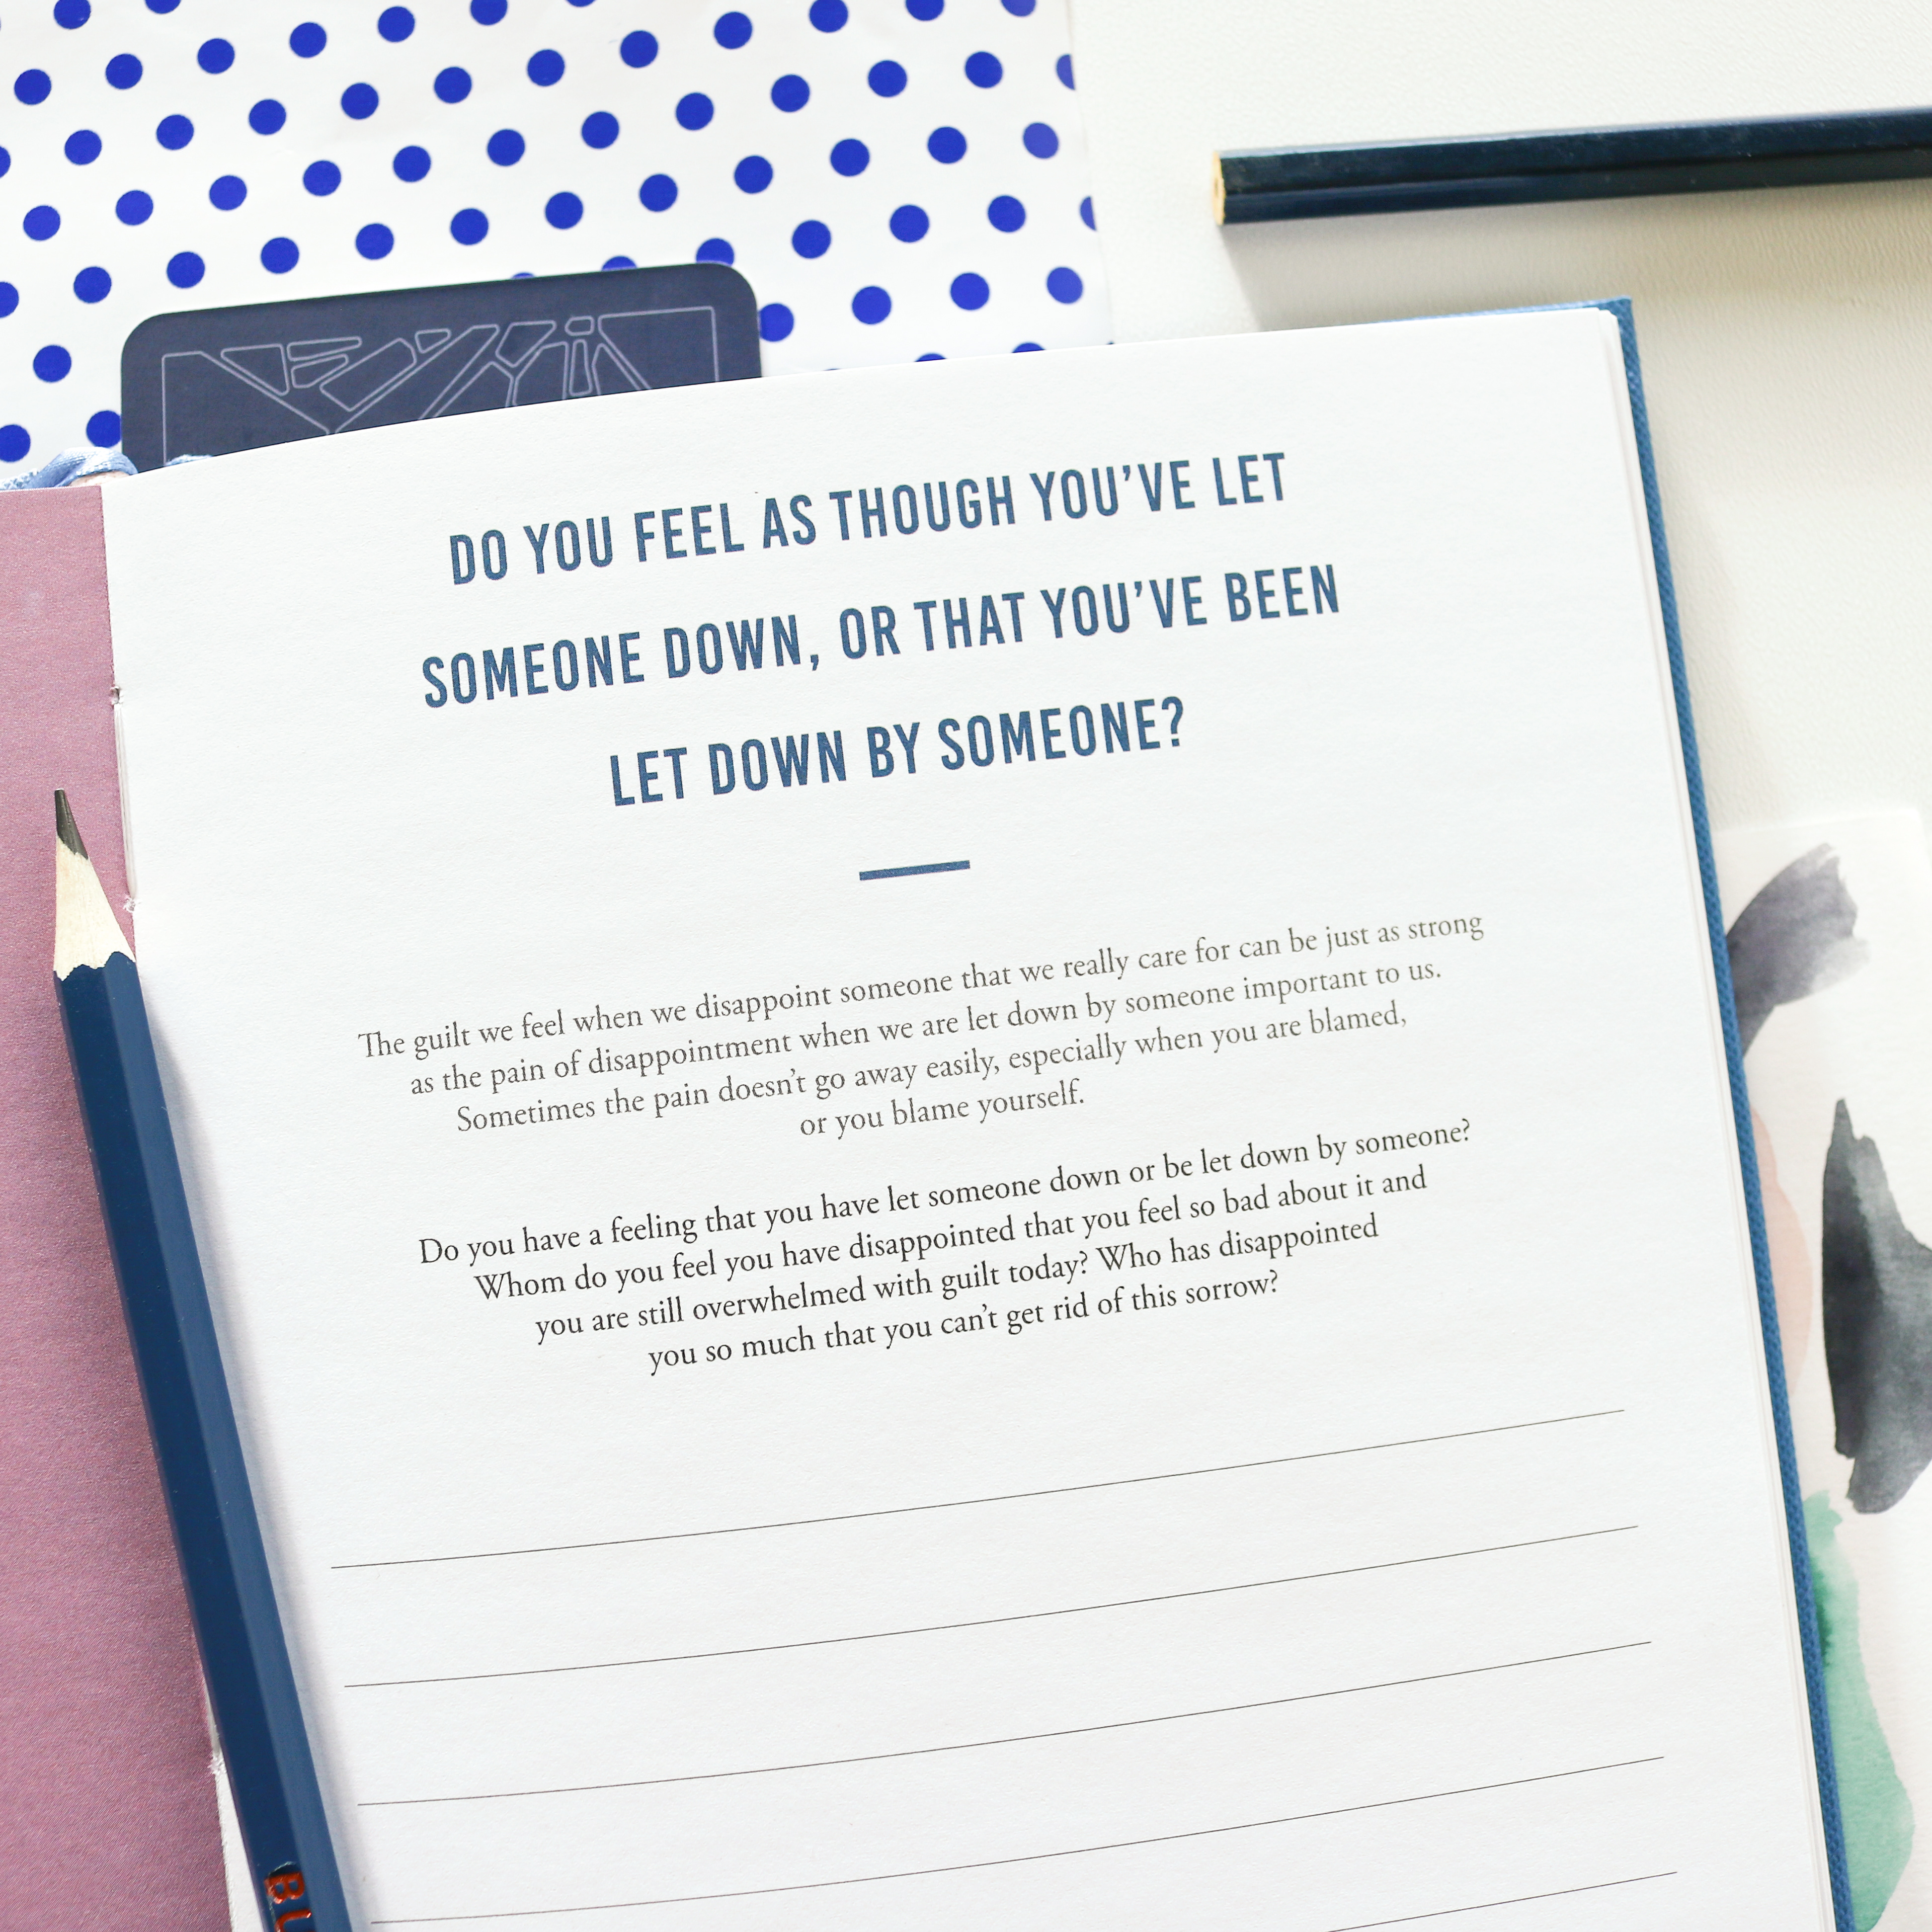 DO YOU FEEL AS THOUGH YOU'VE LET
SOMEONE DOWN, OR THAT YOU'VE BEEN
LET DOWN BY SOMEONE?
The guilt we feel when we disappoint someone that we really care for can be just as strong
as the pain of disappointment when we are let down by someone important to us.
Sometimes the pain doesn't go away easily, especially when you are blamed,
or you blame yourself.
Do you have a feeling that you have let someone down or be let down by someone?
Whom do you feel you have disappointed that you feel so bad about it and
you are still overwhelmed with guilt today? Who has disappointed
you so much that you can't get rid of this sorrow?